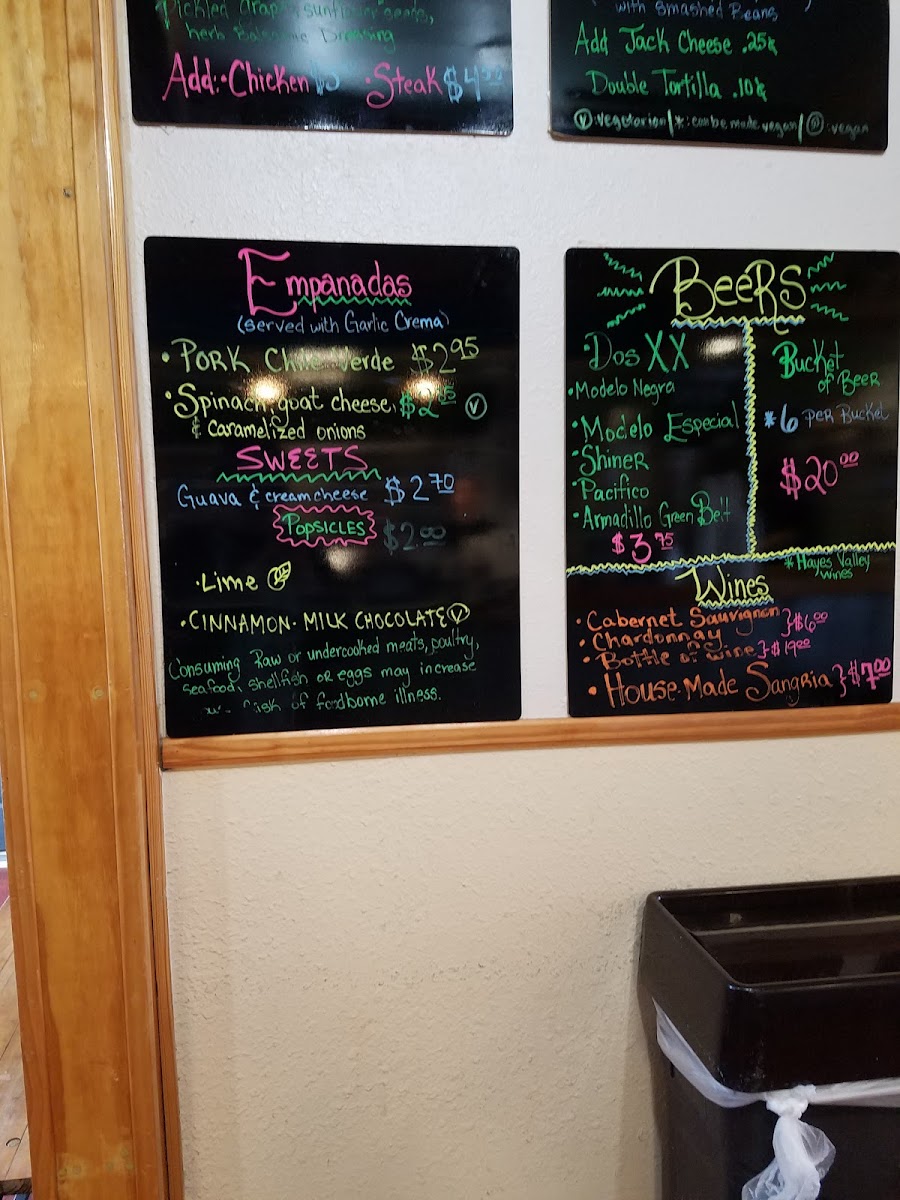 Pickled Grapes, sunflower seeds,
herb Balsamic Dressing
Add: • Chicken • Steak $4.00
with smashed Beans
Add Jack Cheese .25¢
Double Tortilla .10¢
Ⓥ: vegetarian / *: can be made vegan / : vegan
Empanadas
(served with Garlic Crema)
• PORK Chile Verde $2.95
• Spinach, goat cheese, Ⓥ
& Caramelized onions
SWEETS
Guava & cream cheese $2.70
POPSICLES $2.00
• Lime
• CINNAMON • MILK CHOCOLATE Ⓥ
Consuming Raw or undercooked meats, poultry,
seafood, shellfish or eggs may increase
risk of foodborne illness.
BEERS
• Dos XX
• Modelo Negra
• Modelo Especial
• Shiner
• Pacifico
• Armadillo Green Belt
$3.75
Bucket
of BEER
*6 PER Bucket
$20.00
* Hayes Valley
Wines
Wines
• Cabernet Sauvignon } $6.00
• Chardonnay
• Bottle of Wine } $19.00
• House-Made Sangria } $7.00